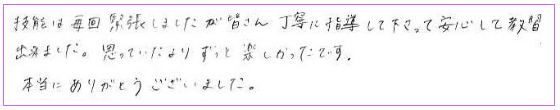 技能は毎回緊張しましたが皆さん丁寧に指導して下さって安心して教習
出来ました。思っていたよりずっと楽しかったです。
本当にありがとうございました。